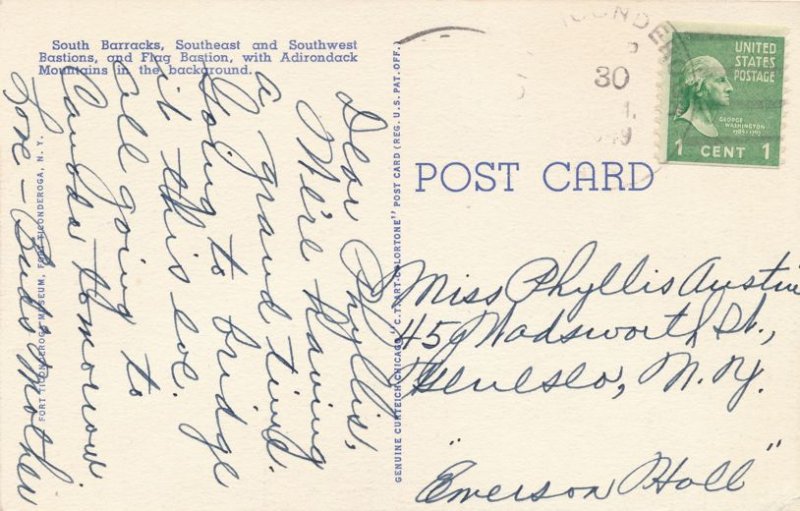 South Barracks, Southeast and Southwest
Bastions, and Flag Bastion, with Adirondack
Mountains in the background.
FORT TICONDEROGA MUSEUM, FORT TICONDEROGA, N. Y.
Dear Phyllis,
We're having
a grand time.
Going to bridge
it this eve.
all going to
Canada tomorrow
Love – Bud's Mother
GENUINE CURTEICH-CHICAGO "C.T. ART-COLORTONE" POST CARD (REG. U.S. PAT. OFF.)
30
UNITED
STATES
POSTAGE
GEORGE
WASHINGTON
1 CENT 1
POST CARD
Miss Phyllis Austin
45 Wadsworth St.,
Geneseo, N.Y.
"Emerson Hall"